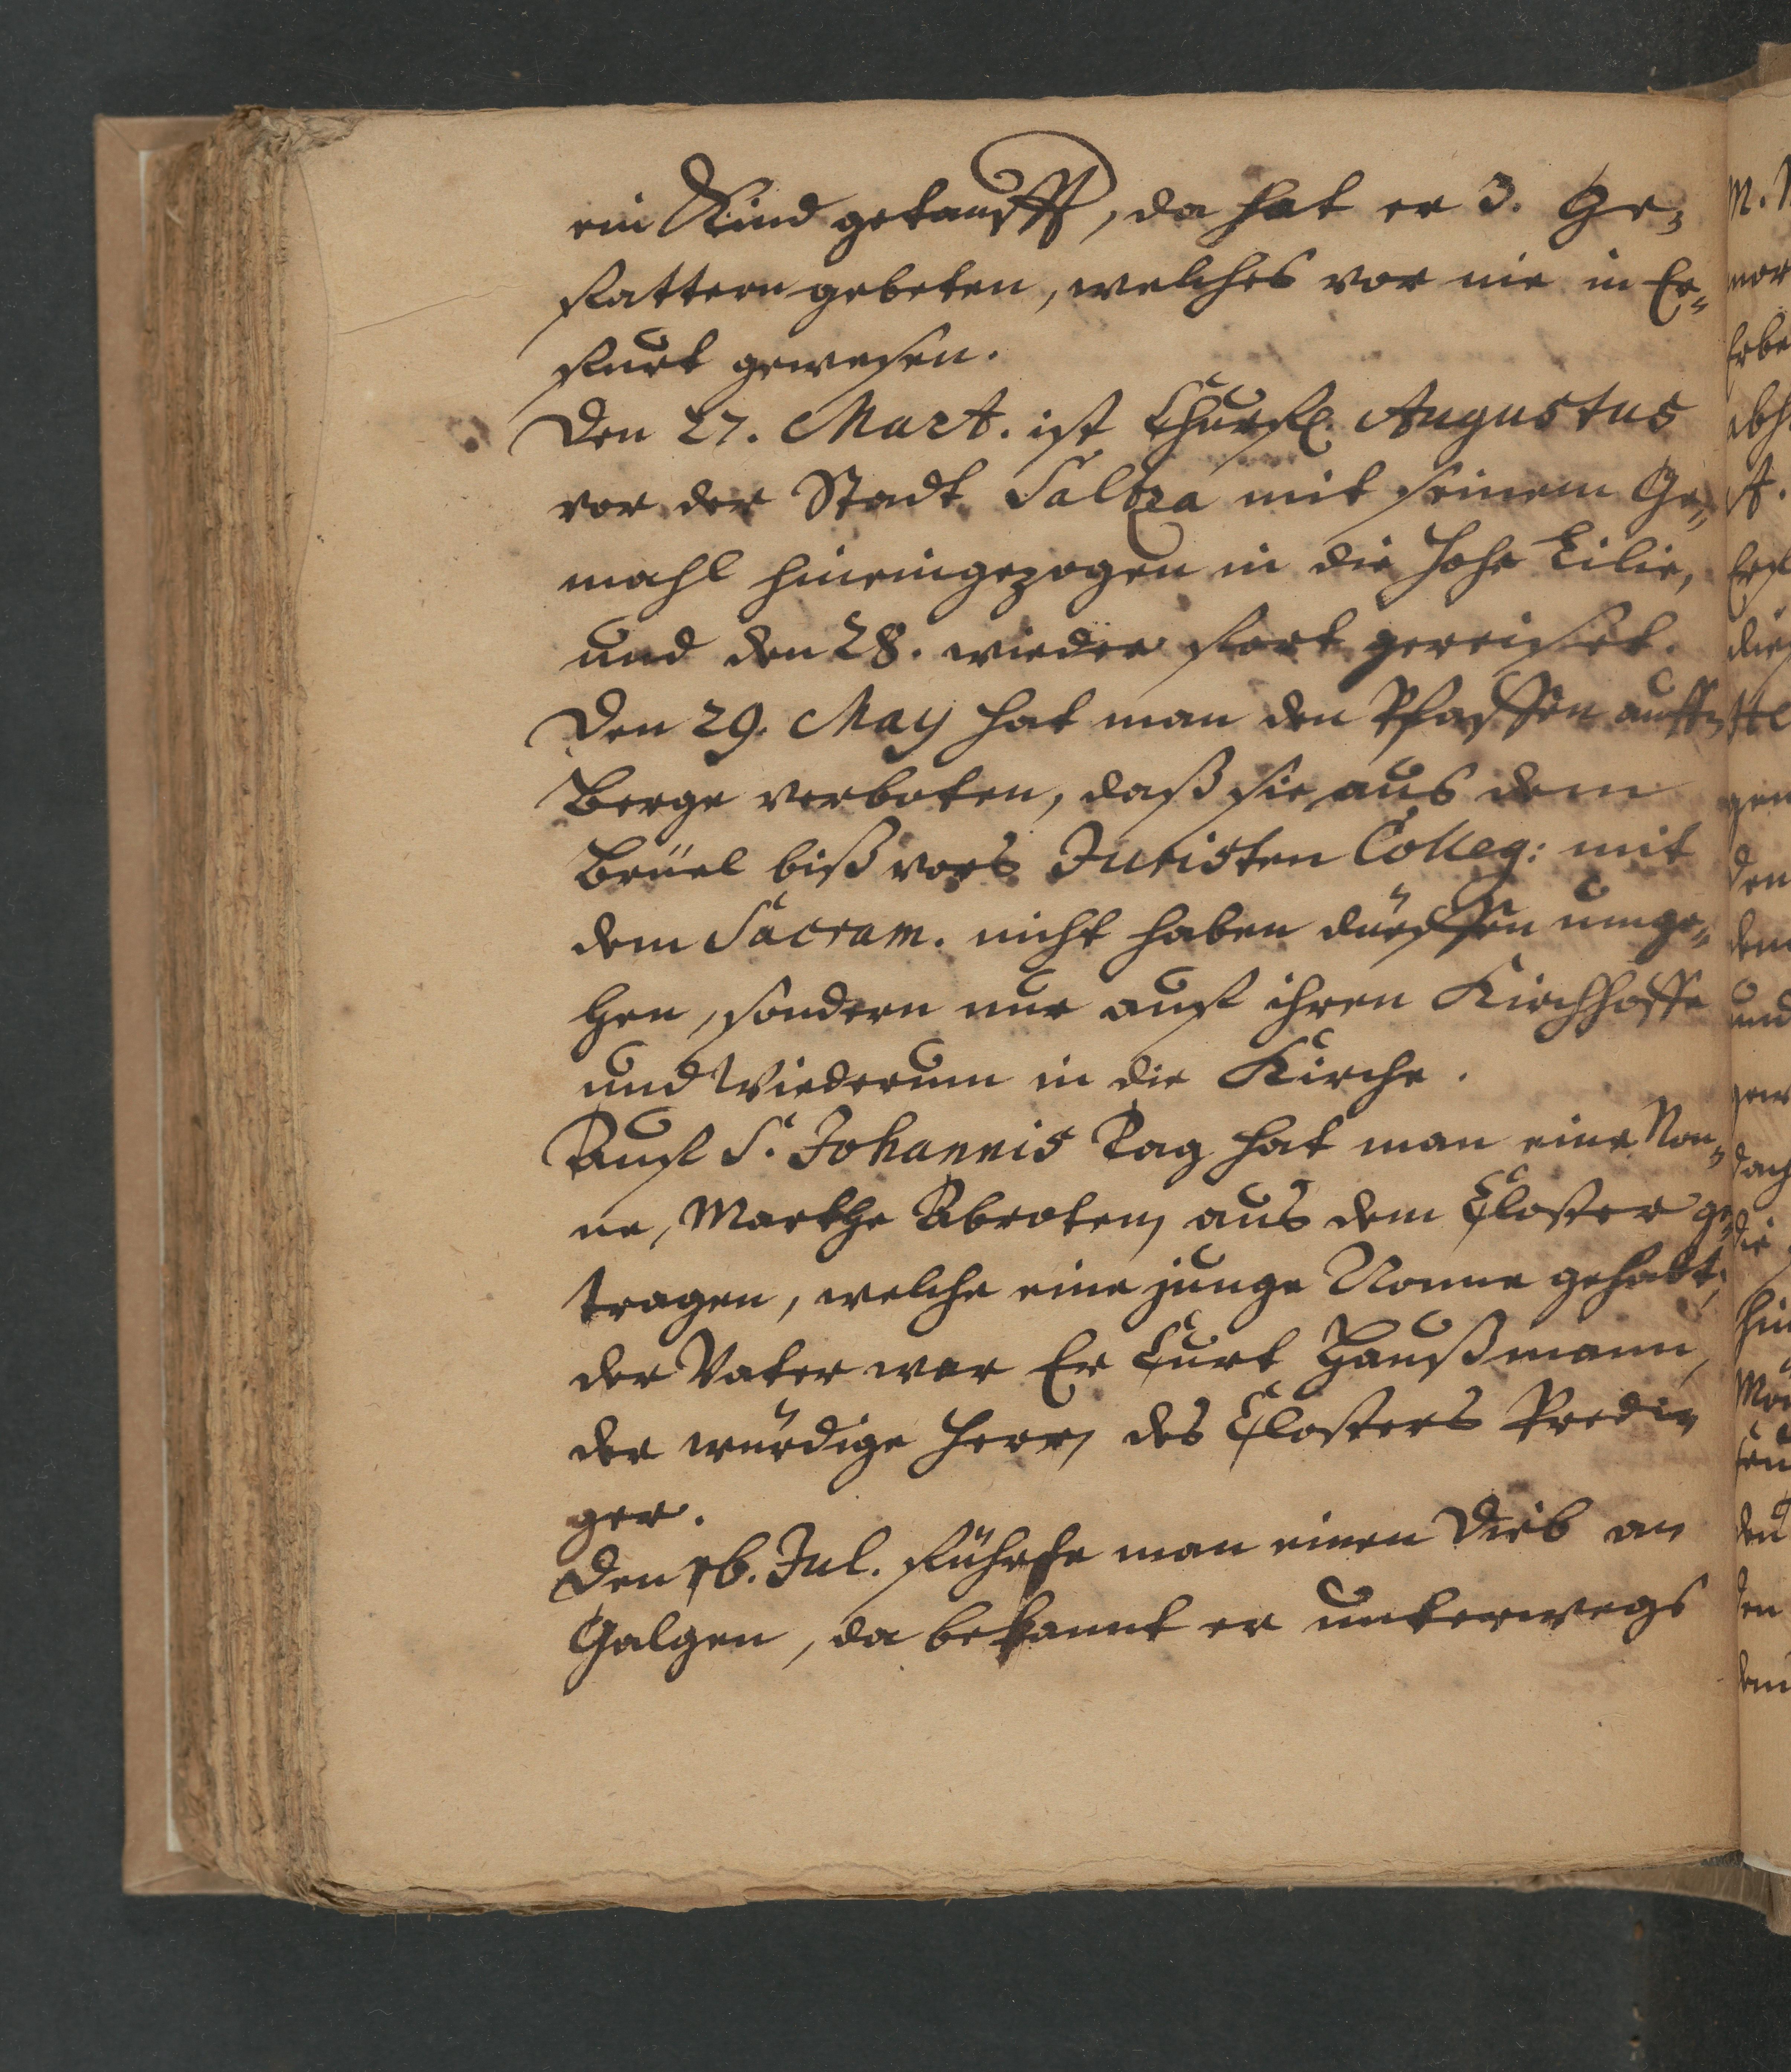 ein Kind getaufft, da hat er 3. Ge-
fattern gebeten, welches vor nie in Er-
furt gewesen.
Den 27. Mart. ist Churf. Augustus
vor der Stadt Saltza mit seinem Ge-
mahl hineingezogen in die Hohe Lilie,
und den 28. wieder fort gereiset.
Den 29. May hat man den Pfaffen auffn
Berge verboten, daß sie aus dem
Brüel biß vors Juristen Colleg: mit
dem Sacram. nicht haben dürffen umge-
hen, sondern nur auf ihren Kirchhoffe
und Wiederum in die Kirche.
Auf S. Johannis Tag hat man eine Non-
ne, Marthe Abroten, aus dem Closter ge-
tragen, welche eine junge Nonne gehabt;
der Vater war Er Curt Haußmann,
der würdige Herr, des Closters Predi-
ger.
Den 16. Jul. führte man einen Dieb an
Galgen, da bekannt er unterwegs